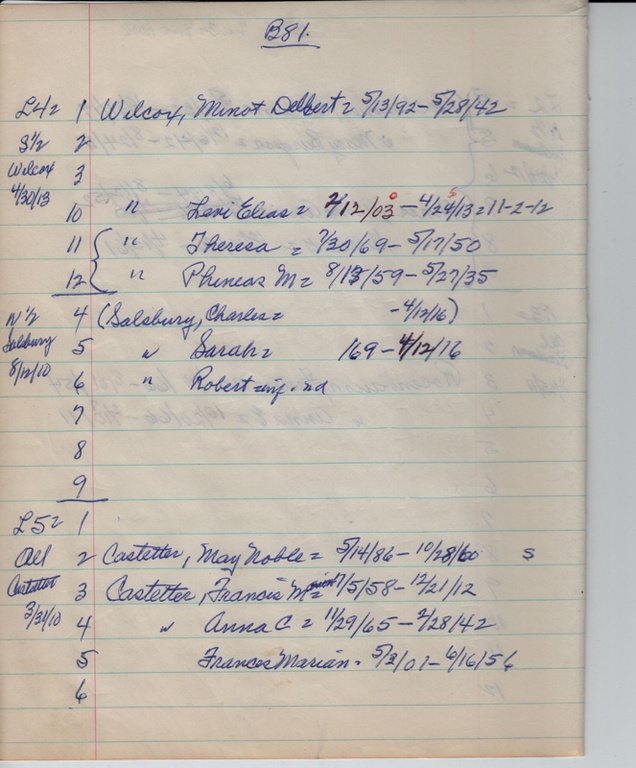 B81.
L4= 1 Wilcox, Minot Delbert = 5/13/92 - 5/28/42
S 1/2 2
Wilcox 3
4/30/13
10 " Levi Elias = 2/12/03 - 4/24/13 = 11-2-12
11 " Theresa = 7/30/69 - 5/17/50
12 " Phineas M = 8/13/59 - 5/27/35
N 1/2 4 (Salsbury, Charles = - 4/12/16)
Salsbury 5 " Sarah = 169 - 4/12/16
8/12/10 6 " Robert = inf. nd
7
8
9
L5= 1
All 2 Castetter, May Noble = 5/14/86 - 10/28/60 S
Castetter 3 Castetter, Francis M = 7/5/58 - 12/21/12
3/31/10 4 " Anna C = 11/29/65 - 2/28/42
5 Frances Marian - 5/3/01 - 6/16/56
6